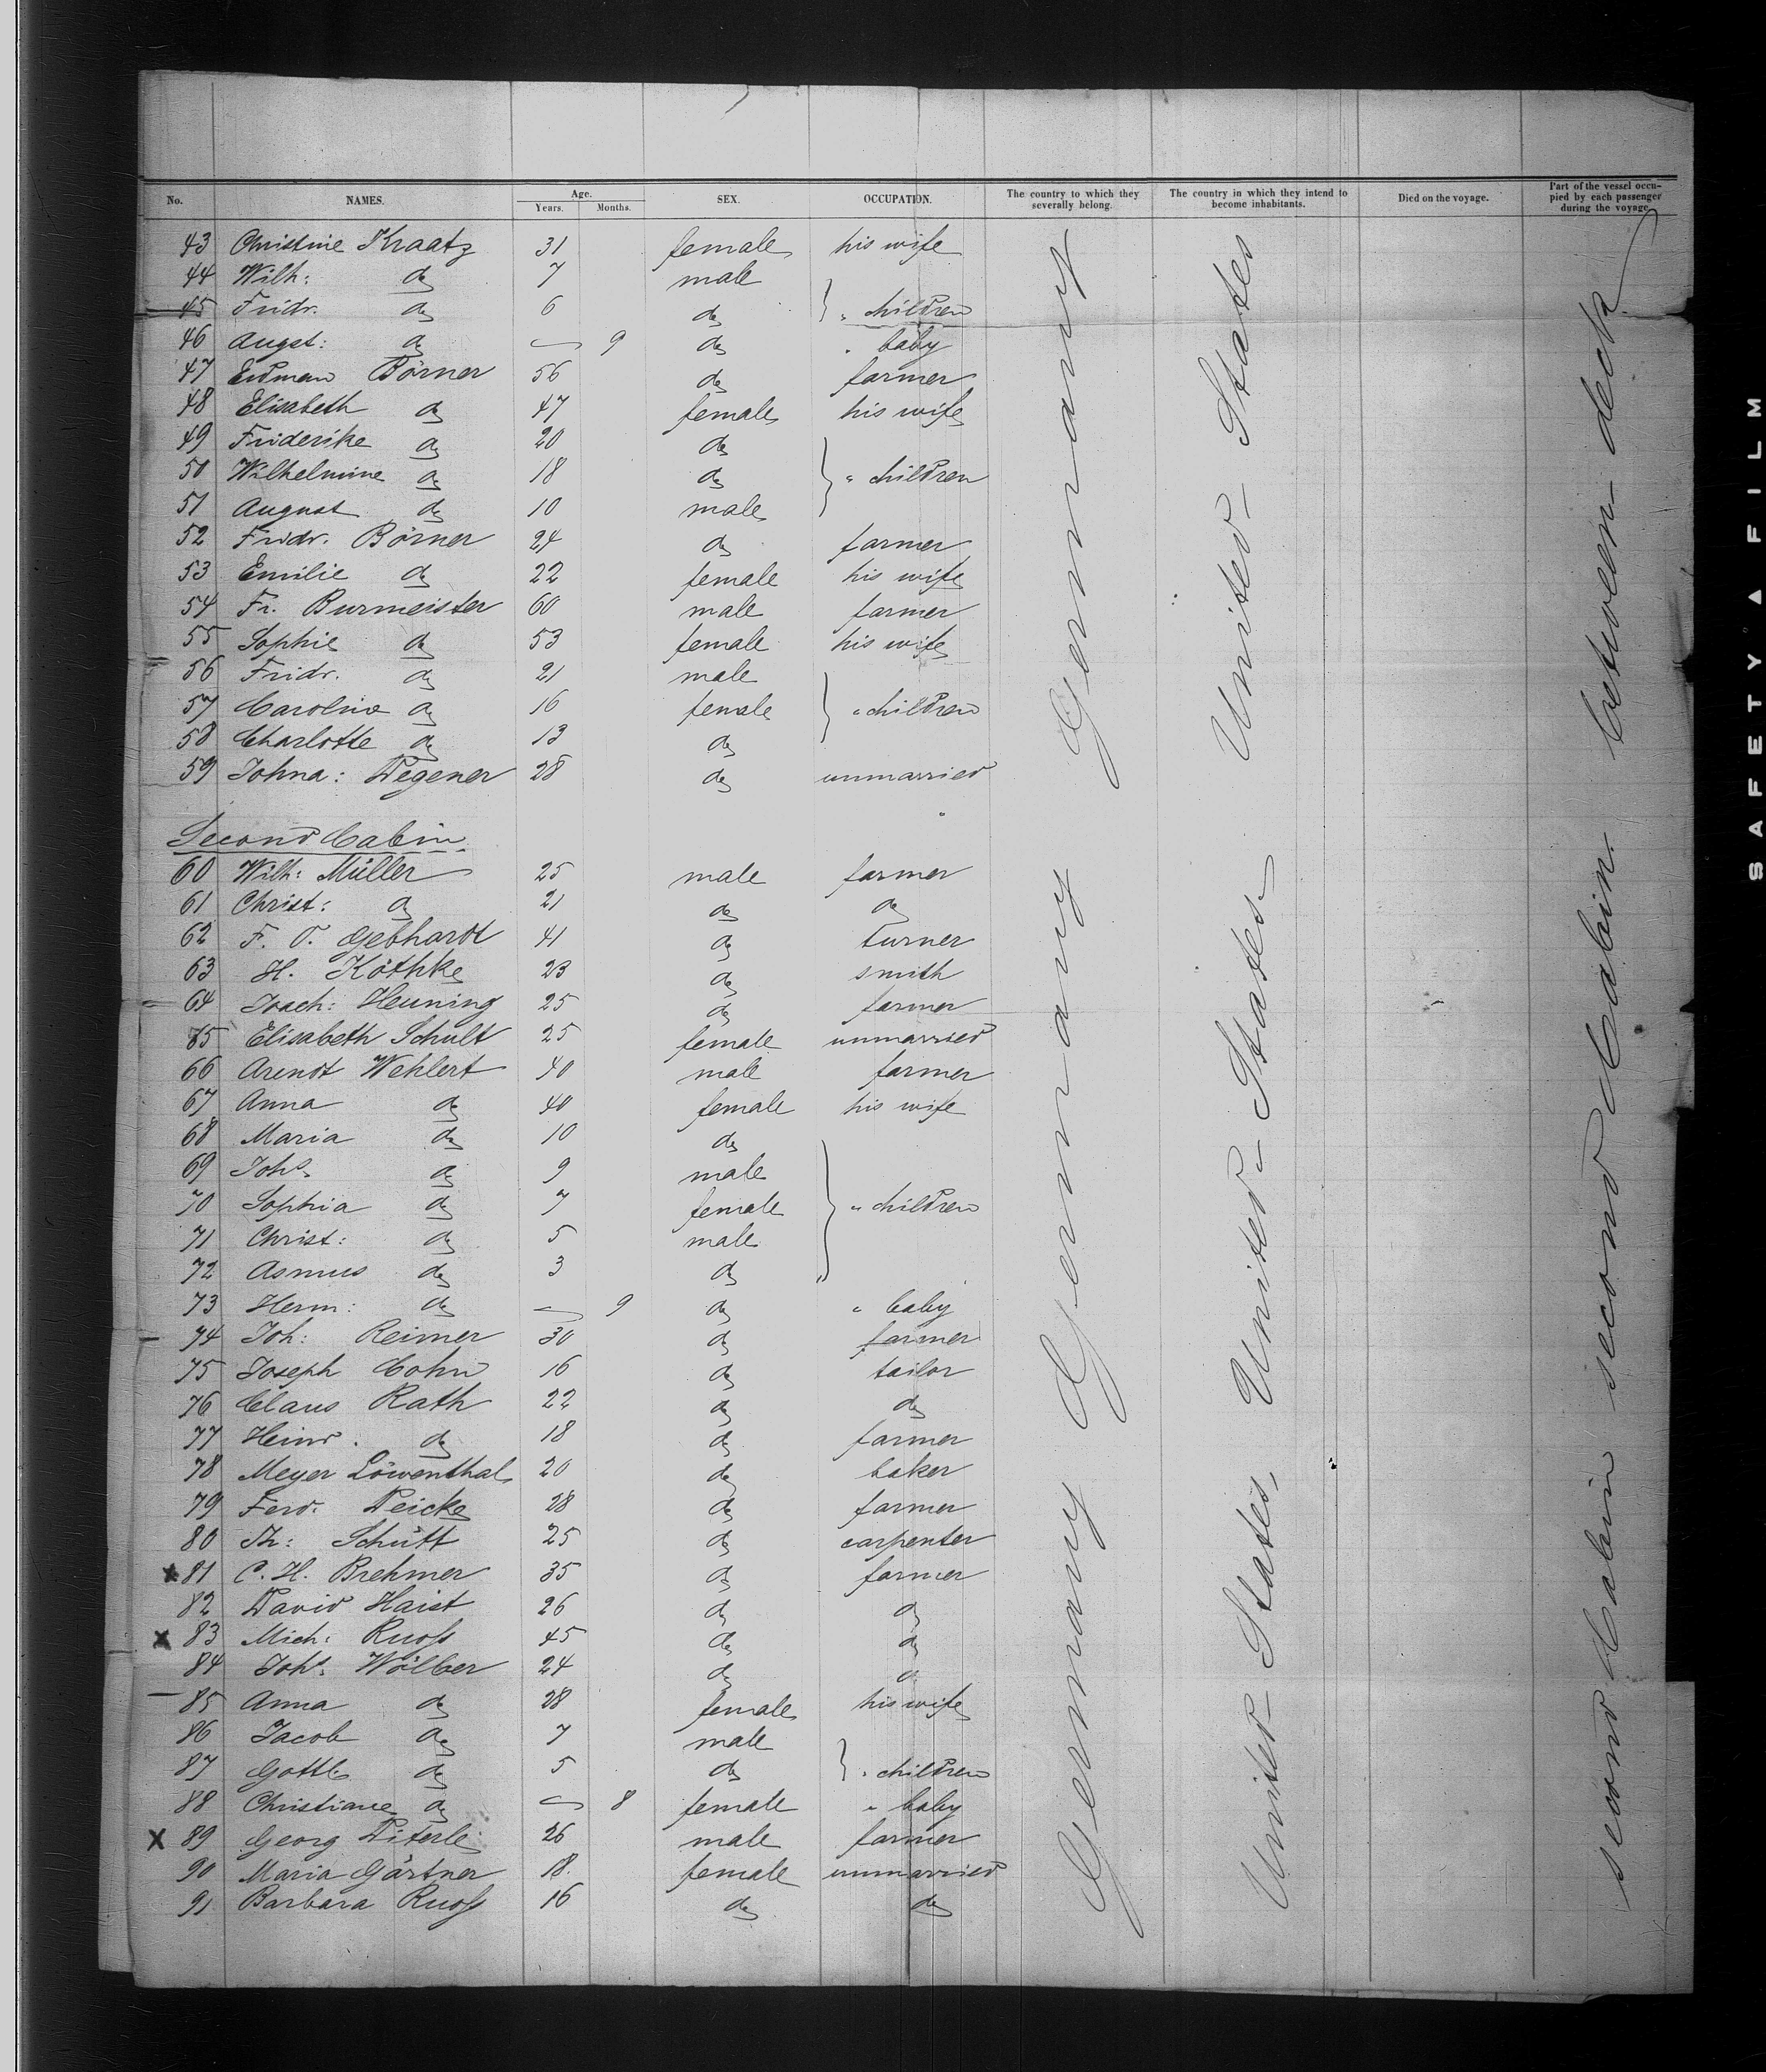 No. NAMES. Age. Years. Months. SEX. OCCUPATION. The country to which they severally belong. The country in which they intend to become inhabitants. Died on the voyage. Part of the vessel occupied by each passenger during the voyage
43 Christine Kraatz 31 female his wife
44 Wilh: do 7 male
45 Fridr. do 6 do } " children
46 Augst: do — 9 do " baby
47 Erdman Börner 56 do farmer
48 Elisabeth do 47 female his wife
49 Friderike do 20 do
50 Wilhelmine do 18 do } " children
51 August do 10 male
52 Fridr. Börner 24 do farmer
53 Emilie do 22 female his wife
54 Fr. Burmeister 60 male farmer
55 Sophie do 53 female his wife
56 Fridr. do 21 male
57 Caroline do 16 female } " children
58 Charlotte do 13 do
59 Johna: Wegener 28 do unmarried
Germany United States between deck
Second Cabin.
60 Wilh: Müller 25 male farmer
61 Christ: do 21 do do
62 F. O. Gebhardt 41 do turner
63 H. Köthke 23 do smith
64 Joach: Henning 25 do farmer
65 Elisabeth Schult 25 female unmarried
66 Arendt Wehlert 40 male farmer
67 Anna do 40 female his wife
68 Maria do 10 do
69 Johs do 9 male
70 Sophia do 7 female } " children
71 Christ: do 5 male
72 Asmus do 3 do "
73 Herm: do — 9 do " baby
74 Joh: Reimer 30 do farmer
75 Joseph Cohn 16 do tailor
76 Claus Rath 22 do do
77 Heinr. do 18 do farmer
78 Meyer Löwenthal 20 do baker
79 Ferd. Deicke 28 do farmer
80 Th: Schütt 25 do carpenter
x 81 C. H. Brehmer 35 do farmer
82 David Haist 26 do do
x 83 Mich: Ruoss 45 do do
84 Johs Wölber 24 do do
85 Anna do 28 female his wife
86 Jacob do 7 male
87 Gottl. do 5 do } " children
88 Christiane do — 8 female " baby
x 89 Georg Diterle 26 male farmer
90 Maria Gärtner 18 female unmarried
91 Barbara Ruoss 16 do do
Germany United States second Cabin.
Germany United States, second Cabin
SAFETY ▲ FILM